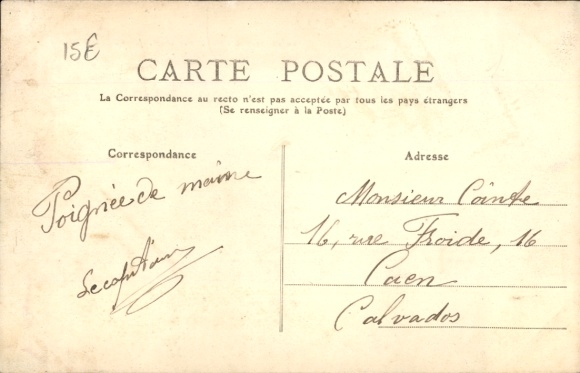 15€
CARTE POSTALE
La Correspondance au recto n'est pas acceptée par tous les pays étrangers
(Se renseigner à la Poste)
Correspondance
Adresse
Poignée de maine
Monsieur Cointe
16, rue Froide, 16
Caen
Calvados